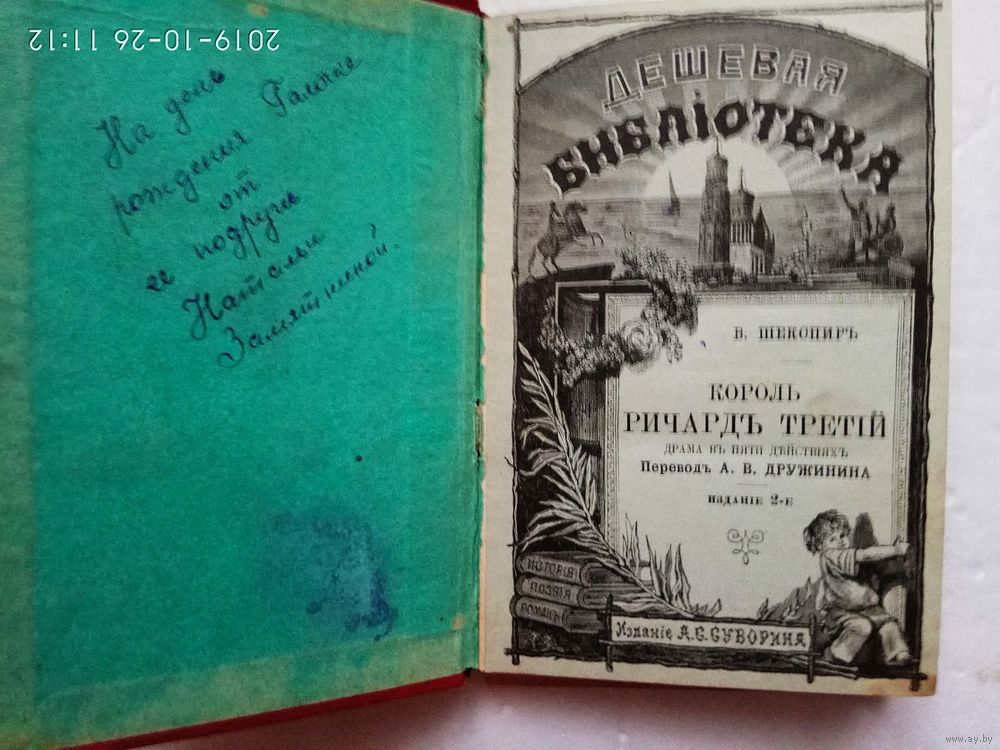 2019-10-26 11:12
На день
рождения Галочке
от
ее подруги
Натальи
Замятниной.
ДЕШЕВАЯ
БИБЛІОТЕКА
В. ШЕКСПИРЪ
КОРОЛЬ
РИЧАРДЪ ТРЕТІЙ
ДРАМА ВЪ ПЯТИ ДѢЙСТВІЯХЪ
Переводъ А. В. ДРУЖИНИНА
ИЗДАНІЕ 2-Е
ИСТОРІЯ
ПОЭЗІЯ
РОМАНЪ
Изданіе А.С.СУВОРИНА
www.ay.by